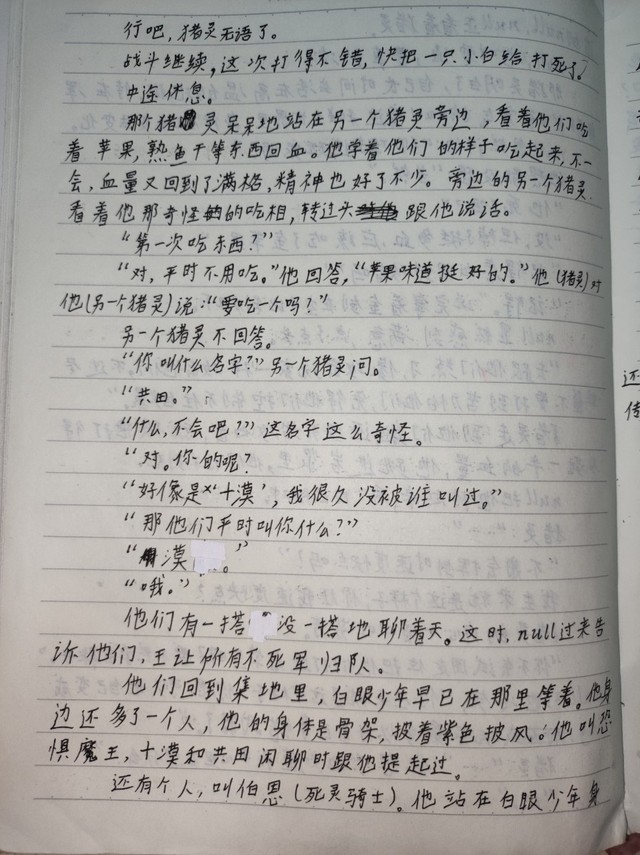 行吧，猪灵无语了。
战斗继续，这次打得不错，快把一只小白给打死了。
中途休息。
那个猪灵呆呆地站在另一个猪灵旁边，看着他们吃
着苹果，熟鱼干等东西回血。他学着他们的样子吃起来，不一
会，血量又回到了满格，精神也好了不少。旁边的另一个猪灵
看着他那奇怪的吃相，转过头跟他说话。
“第一次吃东西？”
“对，平时不用吃。”他回答，“苹果味道挺好的。”他（猪灵）对
他（另一个猪灵）说：“要吃一个吗？”
另一个猪灵不回答。
“你叫什么名字？”另一个猪灵问。
“共田。”
“什么，不会吧？”这名字这么奇怪。
“对。你的呢？”
“好像是‘十漠’，我很久没被谁叫过。”
“那他们平时叫你什么？”
“漠。”
“哦。”
他们有一搭没一搭地聊着天。这时，null过来告
诉他们，王让所有不死军归队。
他们回到集地里，白眼少年早已在那里等着。他身
边还多了一个人，他的身体是骨架，披着紫色披风。他叫恐
惧魔王，十漠和共田闲聊时跟他提起过。
还有个人，叫伯恩（死灵骑士）。他站在白眼少年身
还
传